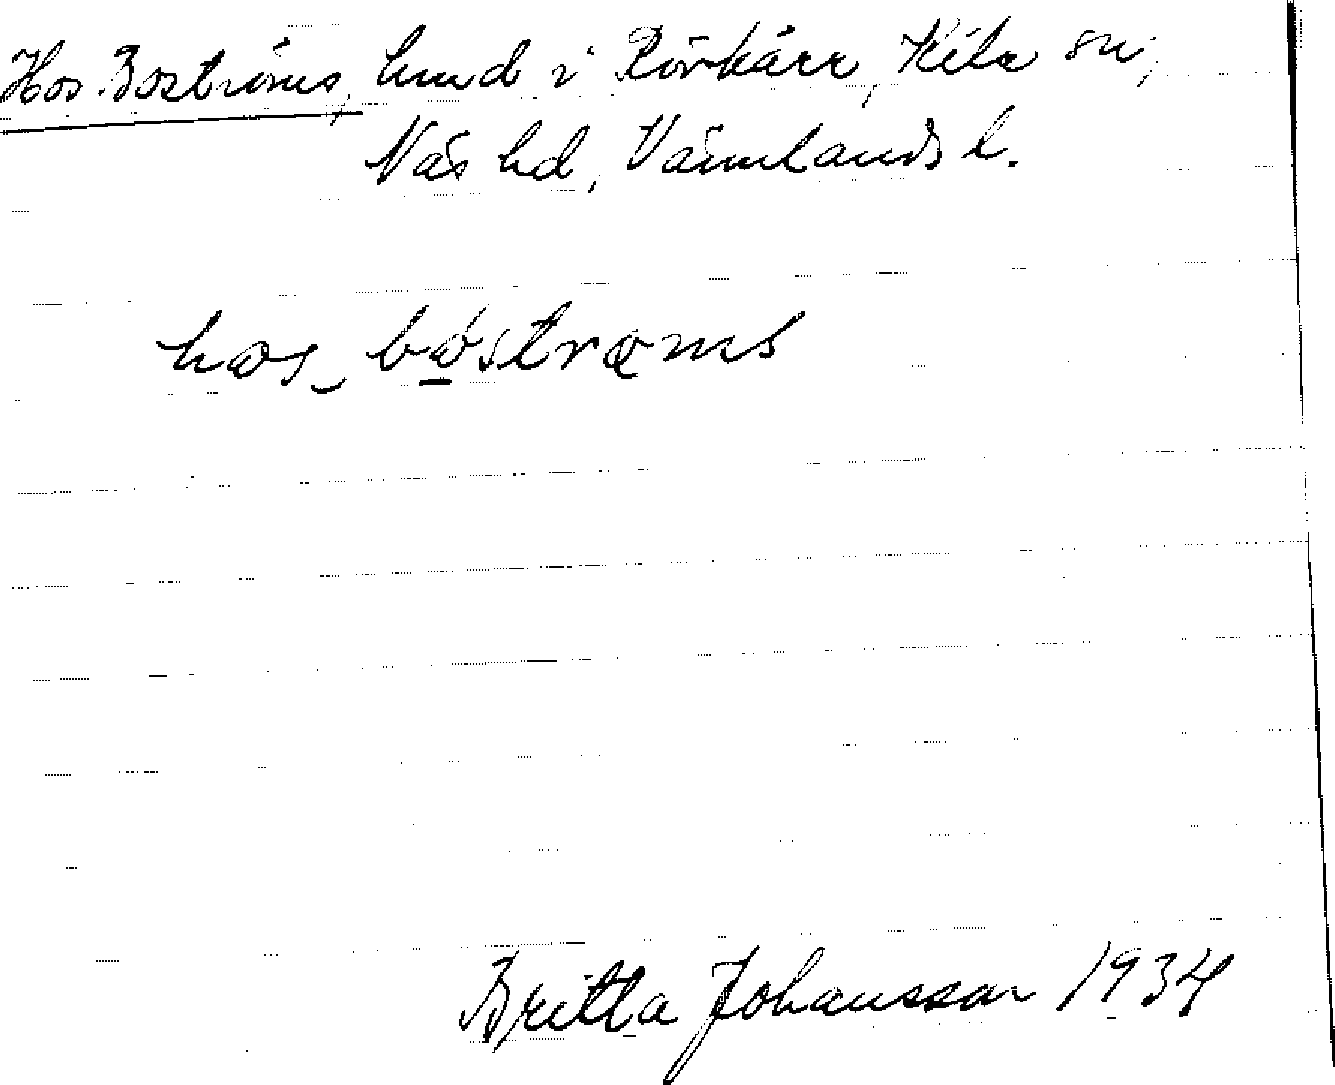 Hos Boströms, hmd i Rörkärr, Kila sn,
Näs hd, Värmlands l.
hos bostrœms
Britta Johansson 1934